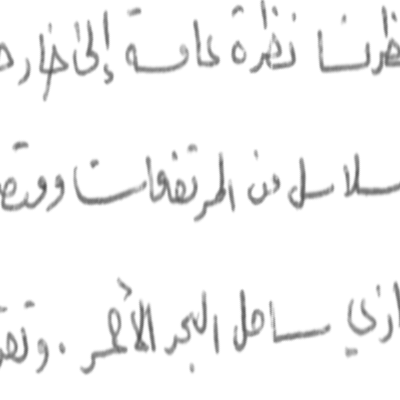 نظرنا نظرة عامة إلى خار
سلاسل من المرتفعات ووتص
ازي ساحل البحر الأحمر . وتقر